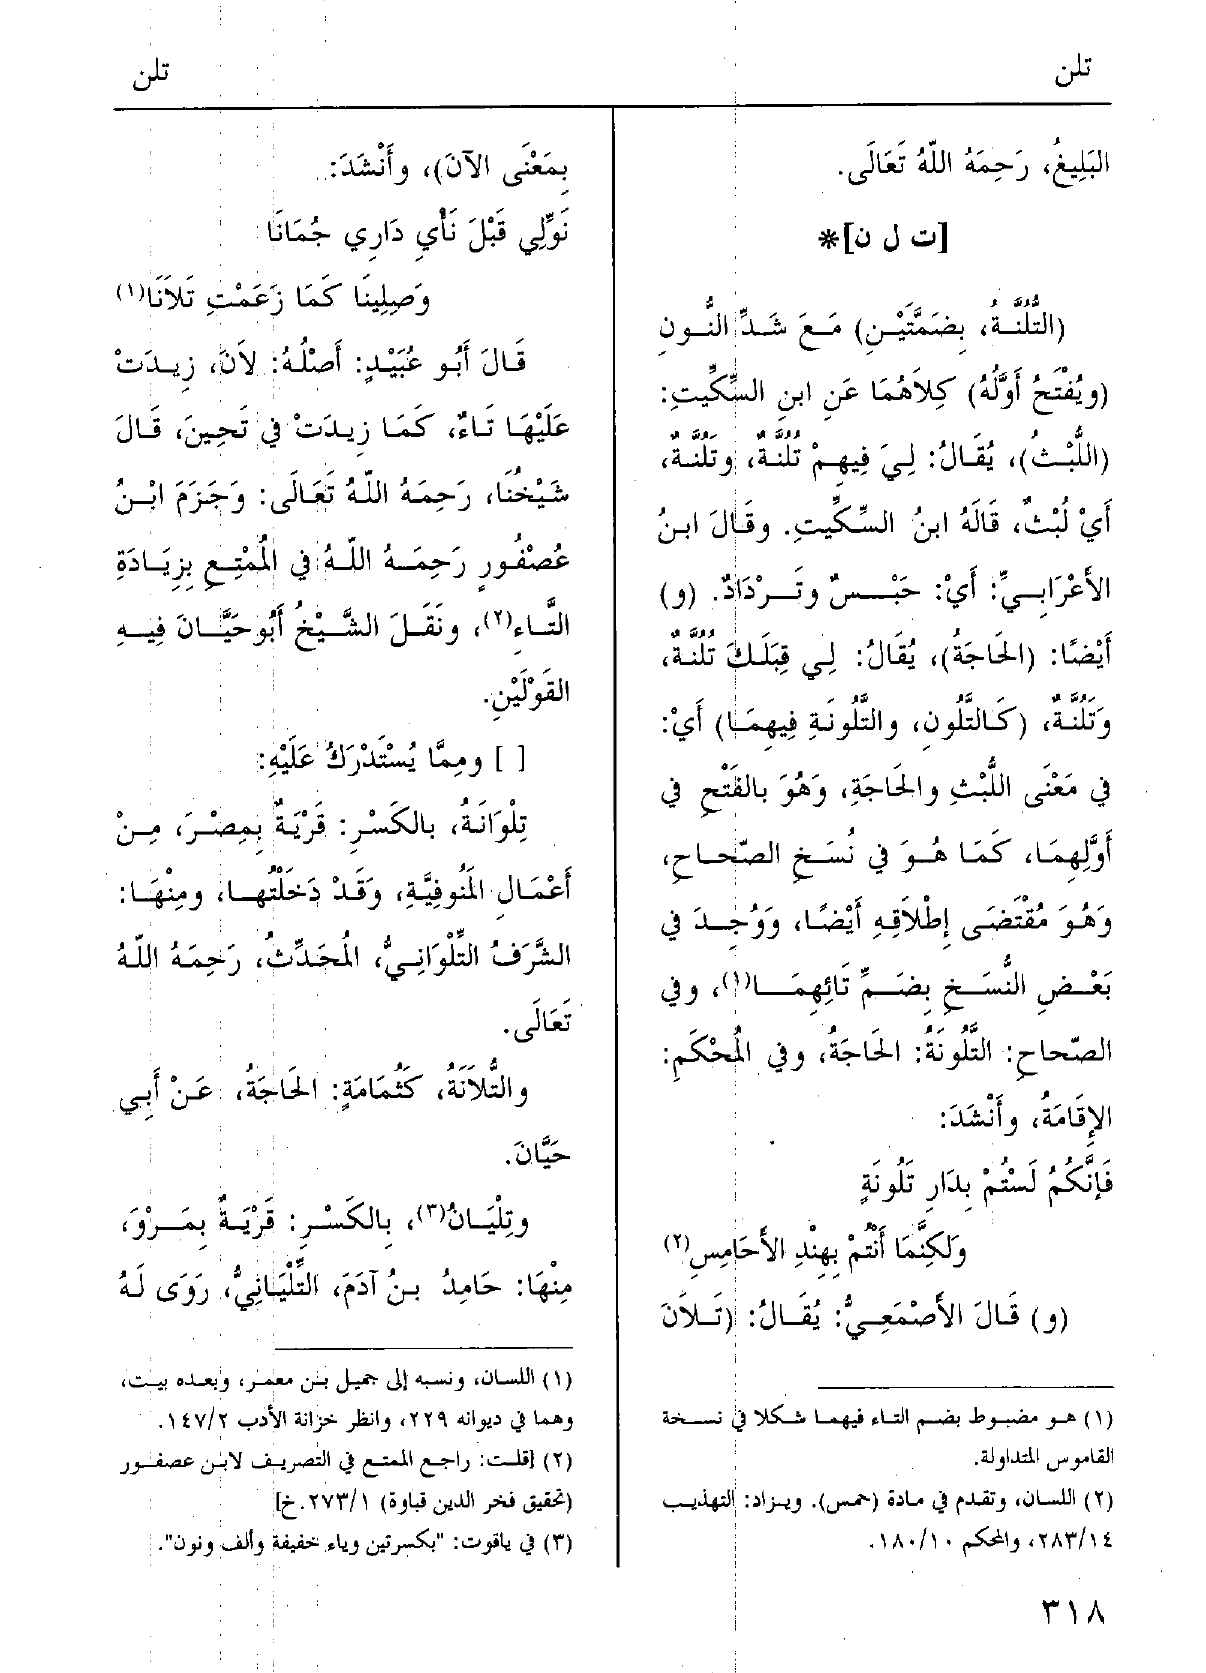 تلن
تلن
البَلِيغُ، رَحِمَهُ اللّهُ تَعَالَى.
[ت ل ن]*
(التُّلُنَّةُ، بِضَمَّتَيْنِ) مَعَ شَدِّ النُّونِ
(ويُفْتَحُ أَوَّلُهُ) كِلاَهُمَا عَنِ ابنِ السِّكِّيتِ:
(اللُّبْثُ)، يُقَالُ: لِيَ فِيهِمْ تُلُنَّةٌ، وتَلُنَّةٌ،
أَيْ لُبْثٌ، قَالَهُ ابنُ السِّكِّيتِ. وقَالَ ابنُ
الأَعْرَابِيِّ: أَيْ: حَبْسٌ وتَرْدَادٌ. (و)
أَيْضًا: (الحَاجَةُ)، يُقَالُ: لِي قِبَلَكَ تُلُنَّةٌ،
وَتَلُنَّةٌ، (كَالتَّلُونِ، والتَّلُونَةِ فِيهِمَا) أَيْ:
فِي مَعْنَى اللُّبْثِ والحَاجَةِ، وَهُوَ بالفَتْحِ فِي
أَوَّلِهِمَا، كَمَا هُوَ فِي نُسَخِ الصّحَاحِ،
وَهُوَ مُقْتَضَى إِطْلاَقِهِ أَيْضًا، وَوُجِدَ فِي
بَعْضِ النُّسَخِ بِضَمِّ تَائِهِمَا(١)، وفِي
الصّحاحِ: التَّلُونَةُ: الحَاجَةُ، وفِي المُحْكَمِ:
الإِقَامَةُ، وأَنْشَدَ:
فَإِنَّكُمُ لَسْتُمْ بِدَارِ تَلُونَةٍ
وَلَكِنَّمَا أَنْتُمْ بِهِنْدِ الأَحَامِسِ(٢)
(و) قَالَ الأَصْمَعِيُّ: يُقَالُ: (تَلاَنَ
(١) هو مضبوط بضم التاء فيهما شكلا في نسخة
القاموس المتداولة.
(٢) اللسان، وتقدم في مادة (حمس). ويزاد: التهذيب
٢٨٣/١٤، والمحكم ١٨٠/١٠.
بِمَعْنَى الآنَ)، وأَنْشَدَ:
نَوِّلِي قَبْلَ نَأْيِ دَارِي جُمَانَا
وَصِلِينَا كَمَا زَعَمْتِ تَلاَنَا(١)
قَالَ أَبُو عُبَيْدٍ: أَصْلُهُ: لاَنَ، زِيدَتْ
عَلَيْهَا تَاءٌ، كَمَا زِيدَتْ فِي تَحِينَ، قَالَ
شَيْخُنَا، رَحِمَهُ اللّهُ تَعَالَى: وَجَزَمَ ابْنُ
عُصْفُورٍ رَحِمَهُ اللّهُ فِي المُمْتِعِ بِزِيَادَةِ
التَّاءِ(٢)، ونَقَلَ الشَّيْخُ أَبُو حَيَّانَ فِيهِ
القَوْلَيْنِ.
[ ] ومِمَّا يُسْتَدْرَكُ عَلَيْهِ:
تِلْوَانَةُ، بالكَسْرِ: قَرْيَةٌ بِمِصْرَ، مِنْ
أَعْمَالِ المُنُوفِيَّةِ، وَقَدْ دَخَلْتُهَا، ومِنْهَا:
الشَّرَفُ التِّلْوَانِيُّ، المُحَدِّثُ، رَحِمَهُ اللّهُ
تَعَالَى.
والتُّلاَنَةُ، كَثُمَامَةٍ: الحَاجَةُ، عَنْ أَبِي
حَيَّانَ.
وتِلْيَانُ(٣)، بِالكَسْرِ: قَرْيَةٌ بِمَرْوَ،
مِنْهَا: حَامِدُ بنُ آدَمَ، التِّلْيَانِيُّ، رَوَى لَهُ
(١) اللسان، ونسبه إلى جميل بن معمر، وبعده بيت،
وهما في ديوانه ٢٢٩، وانظر خزانة الأدب ١٤٧/٢.
(٢) [قلت: راجع الممتع في التصريف لابن عصفور
(تحقيق فخر الدين قباوة) ٢٧٣/١.خ]
(٣) في ياقوت: "بكسرتين وياء خفيفة وألف ونون".
٣١٨